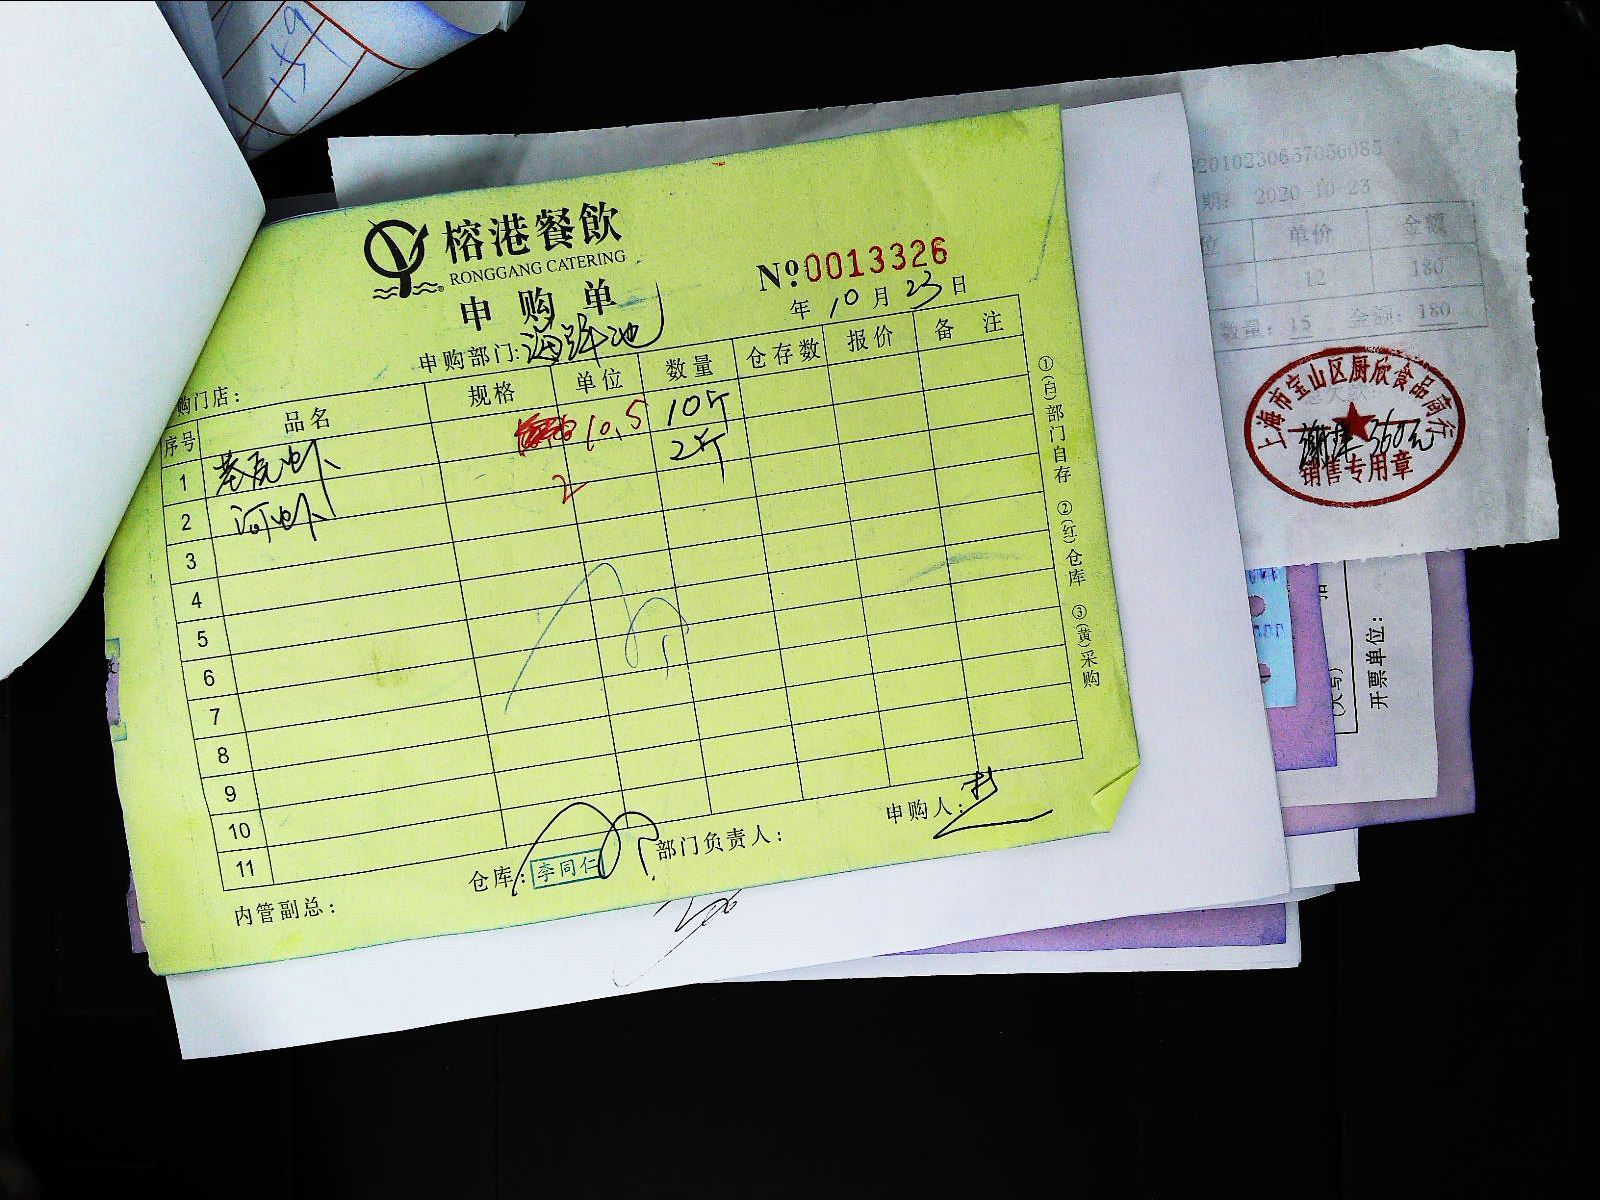 榕港餐飲
RONGGANG CATERING
申购单
№0013326
年 10 月 23 日
申购部门:海鲜池
购门店:
序号 品名 规格 单位 数量 仓存数 报价 备注
1 基尾虾 10.5 10斤
2 河虾 2 2斤
3
4
5
6
7
8
9
10
11
①(白)部门自存 ②(红)仓库 ③(黄)采购
仓库: 李同仁 部门负责人: 申购人:
内管副总:
2010230657056085
期: 2020-10-23
位 单价 金额
12 180
数量: 15 金额: 180
上海市宝山区厨欣食品商行
360元
销售专用章
(大写)
开票单位: